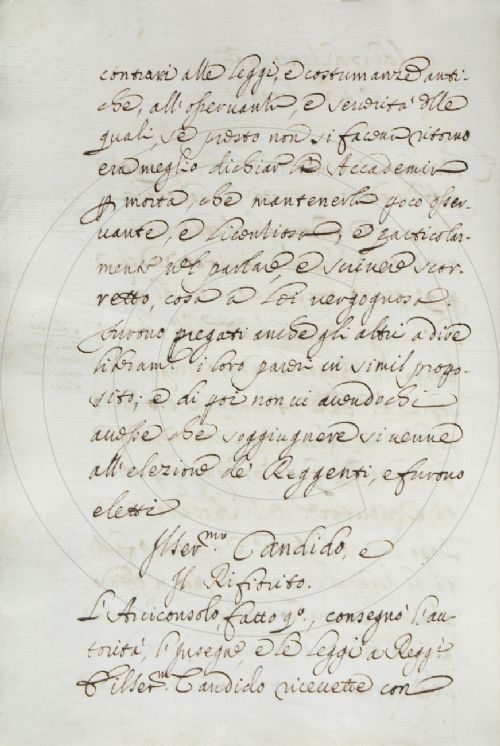 contrari alle leggi, e costumanze anti-
che, all'osservanza, e severità delle
quali, se presto non si facea ritorno
era meglio dichiarar l'Accademia
p morta, che mantenerla poco osser-
vante, e licenziosa; e particolar-
mente nel parlare, e scrivere scor-
retto, cosa a Lei vergognosa.
furono pregati anche gli altri a dire
liberam.te i loro pareri in simil propo-
sito; e di poi non vi avendo chi
avesse che soggiugnere si venne
all'elezione de' Reggenti, e furono
eletti
Il Ser.mo Candido, e
Il Rifiorito.
L'Arciconsolo, fatto q.o, consegnò l'au-
torità, l'Insegne, e le leggi a Regg.i
Il Ser.m Candido ricevette con